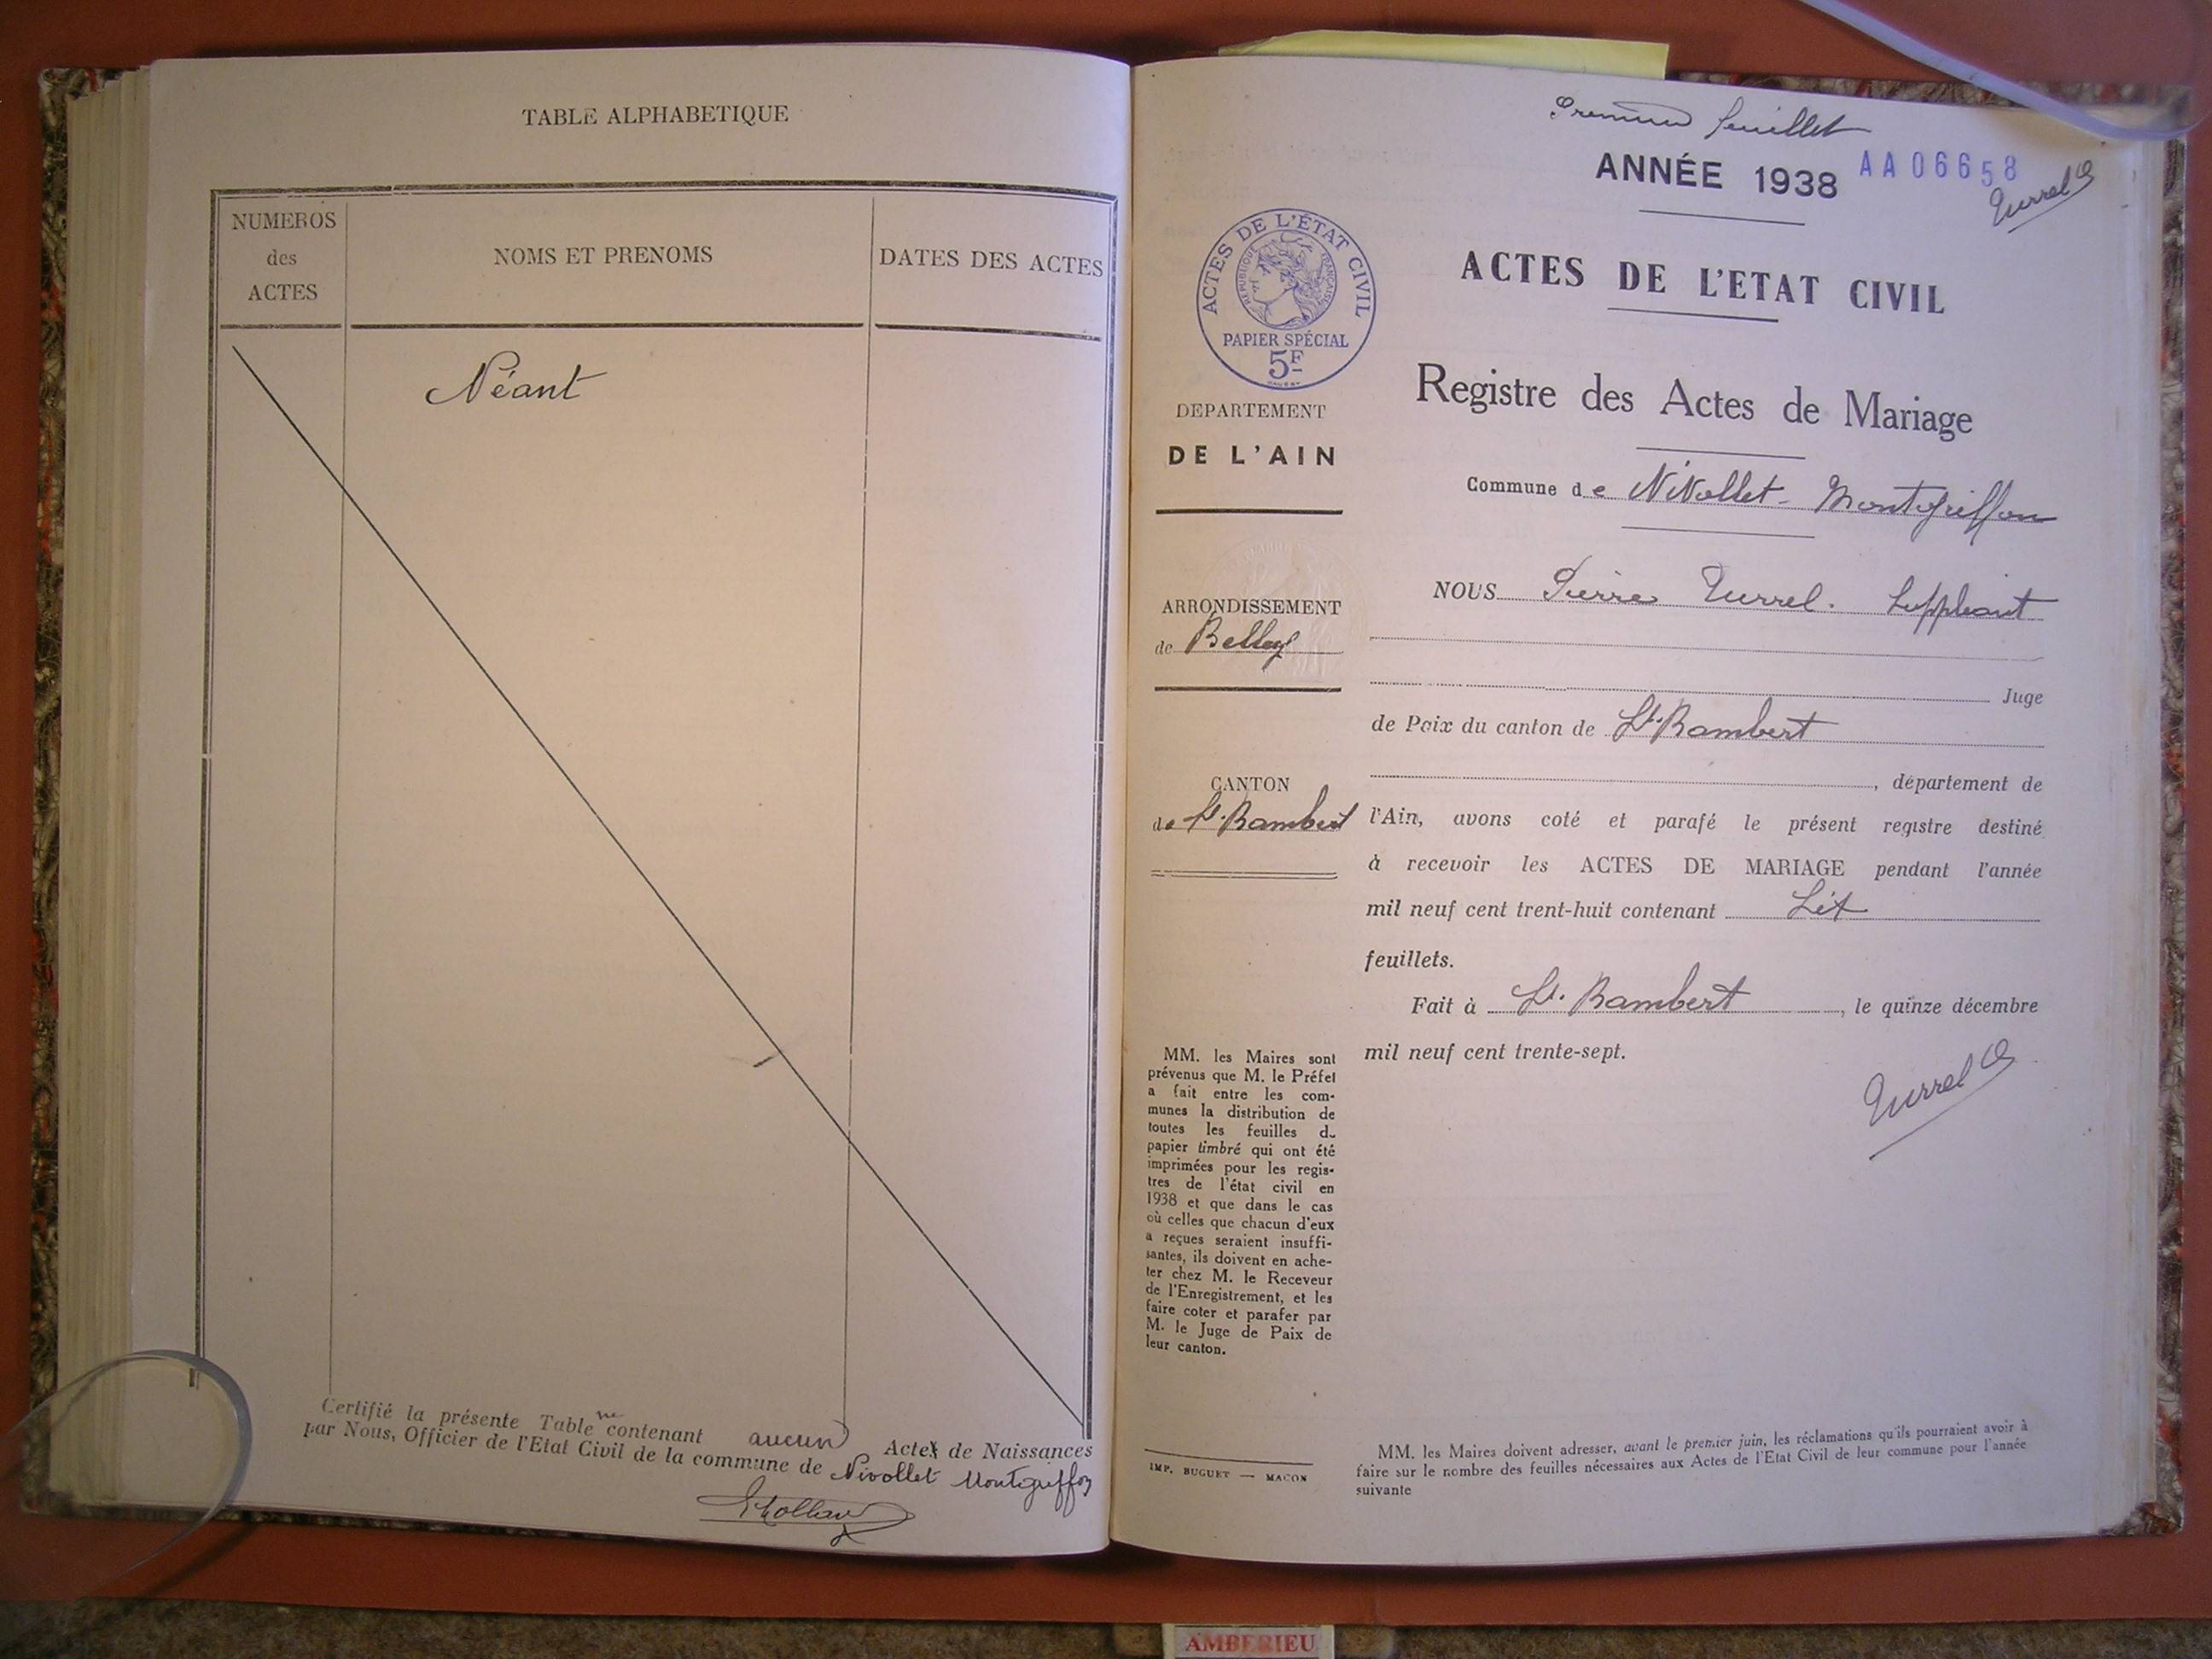 TABLE ALPHABETIQUE
NUMEROS
des
ACTES
NOMS ET PRENOMS
DATES DES ACTES
Néant
Certifié la présente Table ne contenant aucun Acte de Naissances
par Nous, Officier de l'Etat Civil de la commune de Nivollet Montgriffon
Premier feuillet
ANNÉE 1938
AA06658
Turrel
ACTES DE L'ÉTAT CIVIL
RÉPUBLIQUE FRANÇAISE
PAPIER SPÉCIAL
5F
ACTES DE L'ETAT CIVIL
Registre des Actes de Mariage
Commune de Nivollet-Montgriffon
DEPARTEMENT
DE L'AIN
ARRONDISSEMENT
de Belley
CANTON
de St. Rambert
NOUS Pierre Turrel. Suppléant
Juge
de Paix du canton de St. Rambert
, département de
l'Ain, avons coté et parafé le présent registre destiné
à recevoir les ACTES DE MARIAGE pendant l'année
mil neuf cent trent-huit contenant Six
feuillets.
Fait à St. Rambert, le quinze décembre
mil neuf cent trente-sept.
Turrel
MM. les Maires sont
prévenus que M. le Préfet
a fait entre les com-
munes la distribution de
toutes les feuilles du
papier timbré qui ont été
imprimées pour les regis-
tres de l'état civil en
1938 et que dans le cas
où celles que chacun d'eux
a reçues seraient insuffi-
santes, ils doivent en ache-
ter chez M. le Receveur
de l'Enregistrement, et les
faire coter et parafer par
M. le Juge de Paix de
leur canton.
IMP. BUGUET — MACON
MM. les Maires doivent adresser, avant le premier juin, les réclamations qu'ils pourraient avoir à
faire sur le nombre des feuilles nécessaires aux Actes de l'Etat Civil de leur commune pour l'année
suivante
AMBERIEU